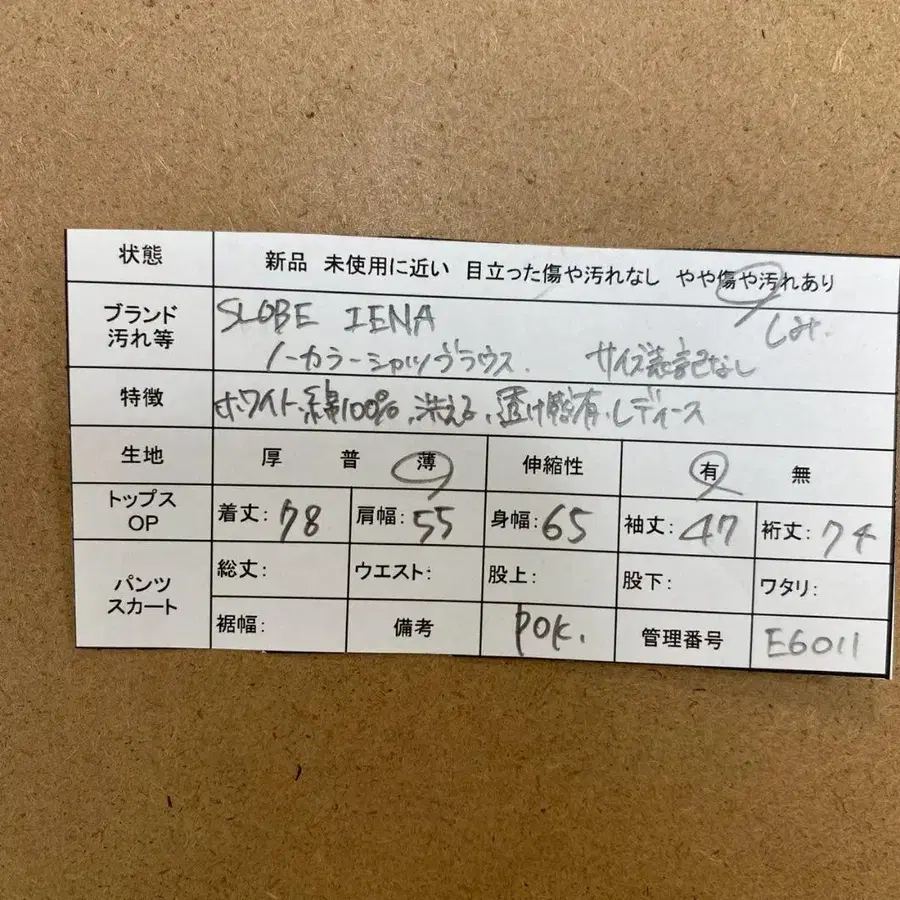 状態 新品 未使用に近い 目立った傷や汚れなし やや傷や汚れあり
ブランド SLOBE IENA しみ.
汚れ等 ノーカラーシャツブラウス. サイズ表記なし
特徴 ホワイト、綿100%、洗える、透け感有、レディース
生地 厚 普 薄 伸縮性 有 無
トップス OP 着丈: 78 肩幅: 55 身幅: 65 袖丈: 47 裄丈: 74
パンツ スカート 総丈: ウエスト: 股上: 股下: ワタリ:
裾幅: 備考 POK. 管理番号 E6011